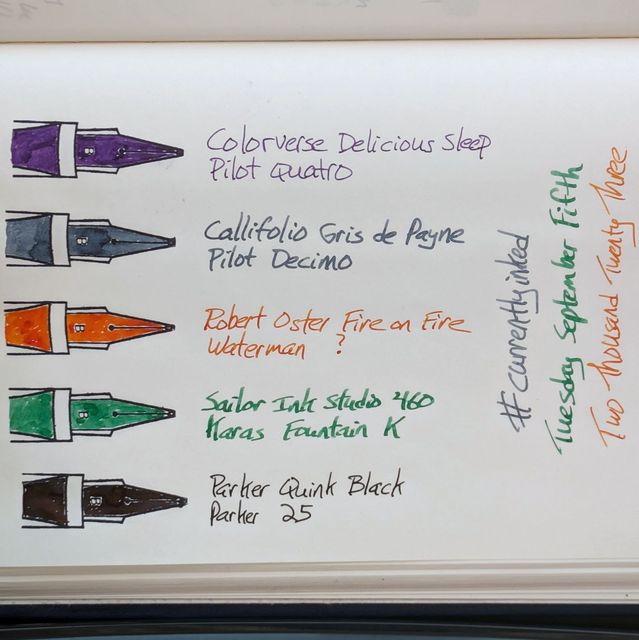 Colorverse Delicious Sleep
Pilot Quatro
Callifolio Gris de Payne
Pilot Decimo
Robert Oster Fire on Fire
Waterman ?
Sailor Ink Studio 460
Karas Fountain K
Parker Quink Black
Parker 25
#currentlyinked
Tuesday September Fifth
Two Thousand Twenty Three